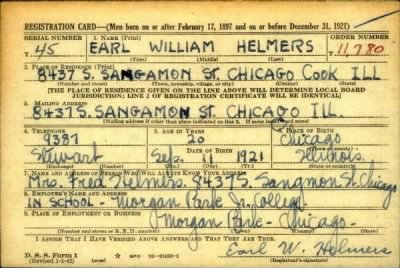 REGISTRATION CARD—(Men born on or after February 17, 1897 and on or before December 31, 1921)
SERIAL NUMBER 1. NAME (Print) ORDER NUMBER
T 45 EARL WILLIAM HELMERS 11,780
(First) (Middle) (Last)
2. PLACE OF RESIDENCE (Print)
8437 S. SANGAMON ST. CHICAGO COOK ILL
(Number and street) (Town, township, village, or city) (County) (State)
[THE PLACE OF RESIDENCE GIVEN ON THE LINE ABOVE WILL DETERMINE LOCAL BOARD
JURISDICTION; LINE 2 OF REGISTRATION CERTIFICATE WILL BE IDENTICAL]
3. MAILING ADDRESS
8437 S. SANGAMON ST. CHICAGO ILL.
[Mailing address if other than place indicated on line 2. If same insert word same]
4. TELEPHONE 5. AGE IN YEARS 6. PLACE OF BIRTH
9387 20 Chicago
DATE OF BIRTH (Town or county)
Stewart Sep. 11 1921 Illinois.
(Exchange) (Number) (Mo.) (Day) (Yr.) (State or country)
7. NAME AND ADDRESS OF PERSON WHO WILL ALWAYS KNOW YOUR ADDRESS
Mrs. Fred Helmers. 8437 S. Sangmon St. Chicago
8. EMPLOYER'S NAME AND ADDRESS
IN SCHOOL - Morgan Park Jr. College
9. PLACE OF EMPLOYMENT OR BUSINESS
Morgan Park - Chicago -
(Number and street or R. F. D. number) (Town) (County) (State)
I AFFIRM THAT I HAVE VERIFIED ABOVE ANSWERS AND THAT THEY ARE TRUE.
Earl W. Helmers
D. S. S. Form 1
(Revised 1-1-42) GPO (Registrant's signature)